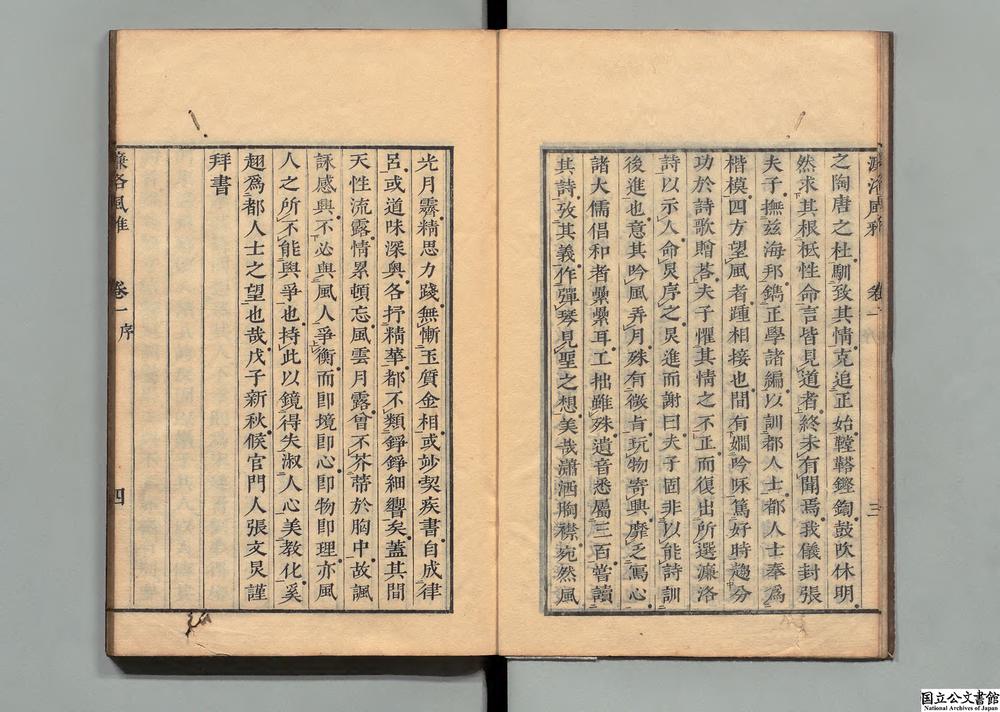 濂洛風雅　卷一　序　三
之陶唐之杜馴致其情克追正始鞺鞳鏗鍧鼓吹休明
然求其根柢性命言皆見道者終未有聞焉我儀封張
夫子撫茲海邦鐫正學諸編以訓都人士都人士奉為
楷模四方望風者踵相接也間有嫺吟咏篤好時趨分
功於詩歌贈荅夫子懼其情之不正而復出所選濂洛
詩以示人命炅序之炅進而謝曰夫子固非以能詩訓
後進也意其吟風弄月殊有微肯玩物寄興靡乏寫心
諸大儒倡和者纍纍耳工拙雖殊遺音悉屬三百嘗讀
其詩攷其義作彈琴見聖之想美哉瀟洒胸襟宛然風
光月霽精思力踐無慚玉質金相或妙契疾書自成律
呂或道味深與各抒精華都不類錚錚細響矣蓋其間
天性流露情累頓忘風雲月露曾不芥蔕於胸中故諷
詠感興不必與風人爭衡而即境即心即物即理亦風
人之所不能與爭也持此以鏡得失淑人心美教化奚
翅為都人士之望也哉戊子新秋候官門人張文炅謹
拜書
濂洛風雅　卷一　序　四
国立公文書館
National Archives of Japan